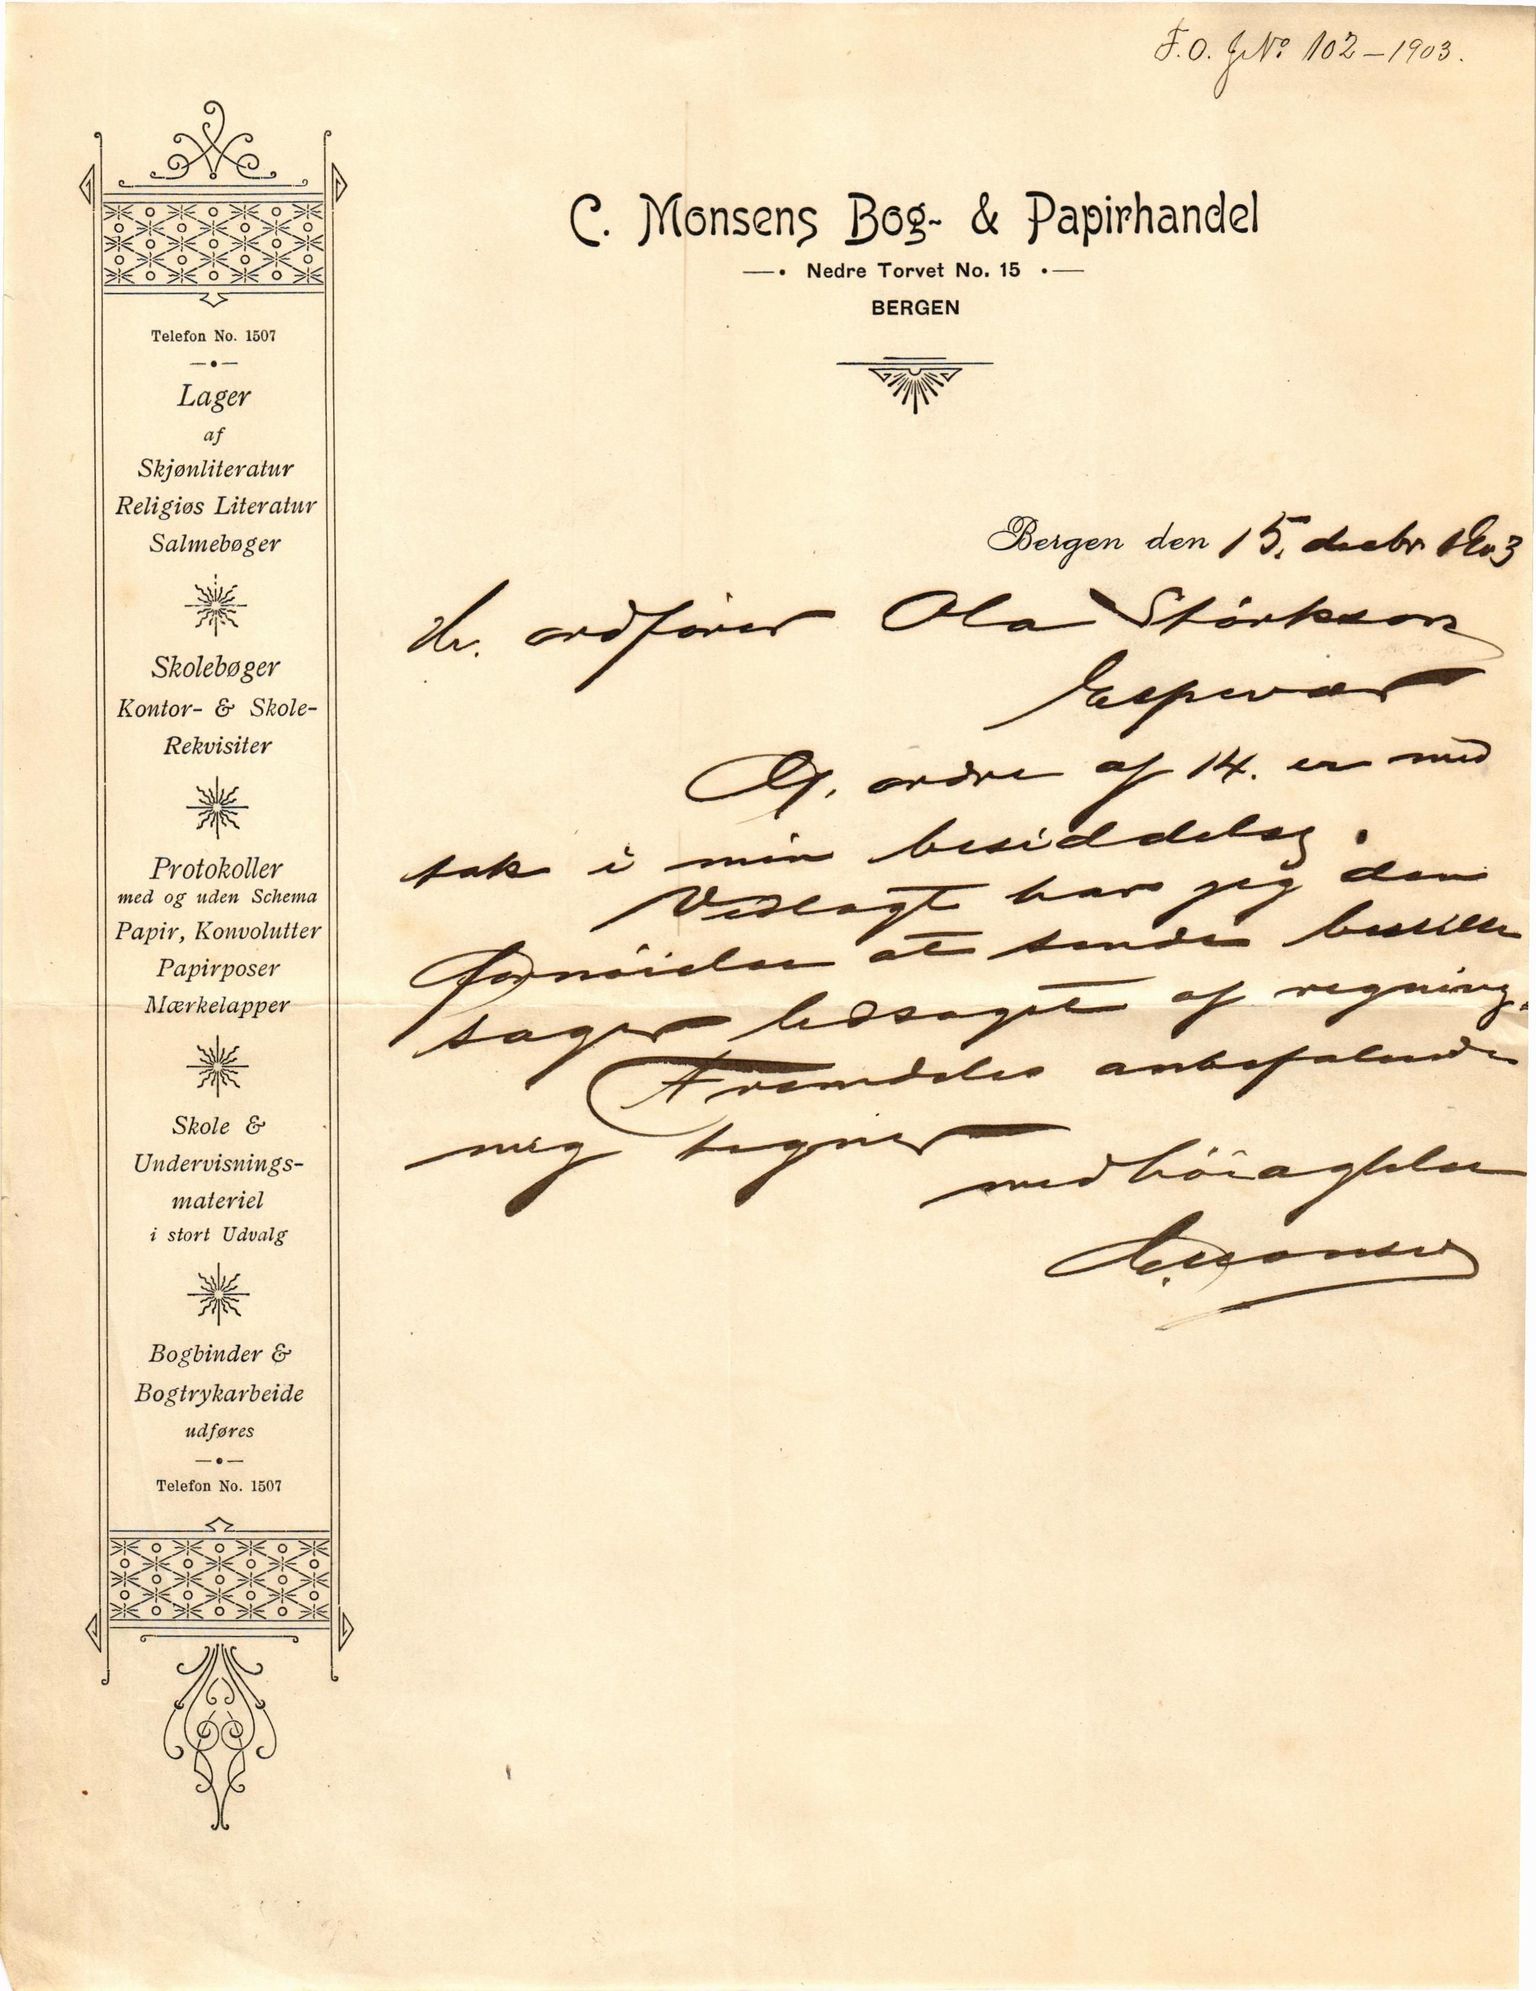 F.O. JNo 102-1903.
C. Monsens Bog- & Papirhandel
Nedre Torvet No. 15
BERGEN
Telefon No. 1507
Lager
af
Skjønliteratur
Religiøs Literatur
Salmebøger
Skolebøger
Kontor- & Skole-
Rekvisiter
Protokoller
med og uden Schema
Papir, Konvolutter
Papirposer
Mærkelapper
Skole &
Undervisnings-
materiel
i stort Udvalg
Bogbinder &
Bogtrykarbeide
udføres
Telefon No. 1507
Bergen den 15. decbr 1903
Hr. ordfører Ola Størkson
Espevær
ordre af 14. er med
tak i min besiddelse.
Vedlagt har jeg den
fornöielse at sende bestilte
sager ledsaget af regning.
Fremdeles anbefalende
mig tegner
med höiagtelse
C. Monsen